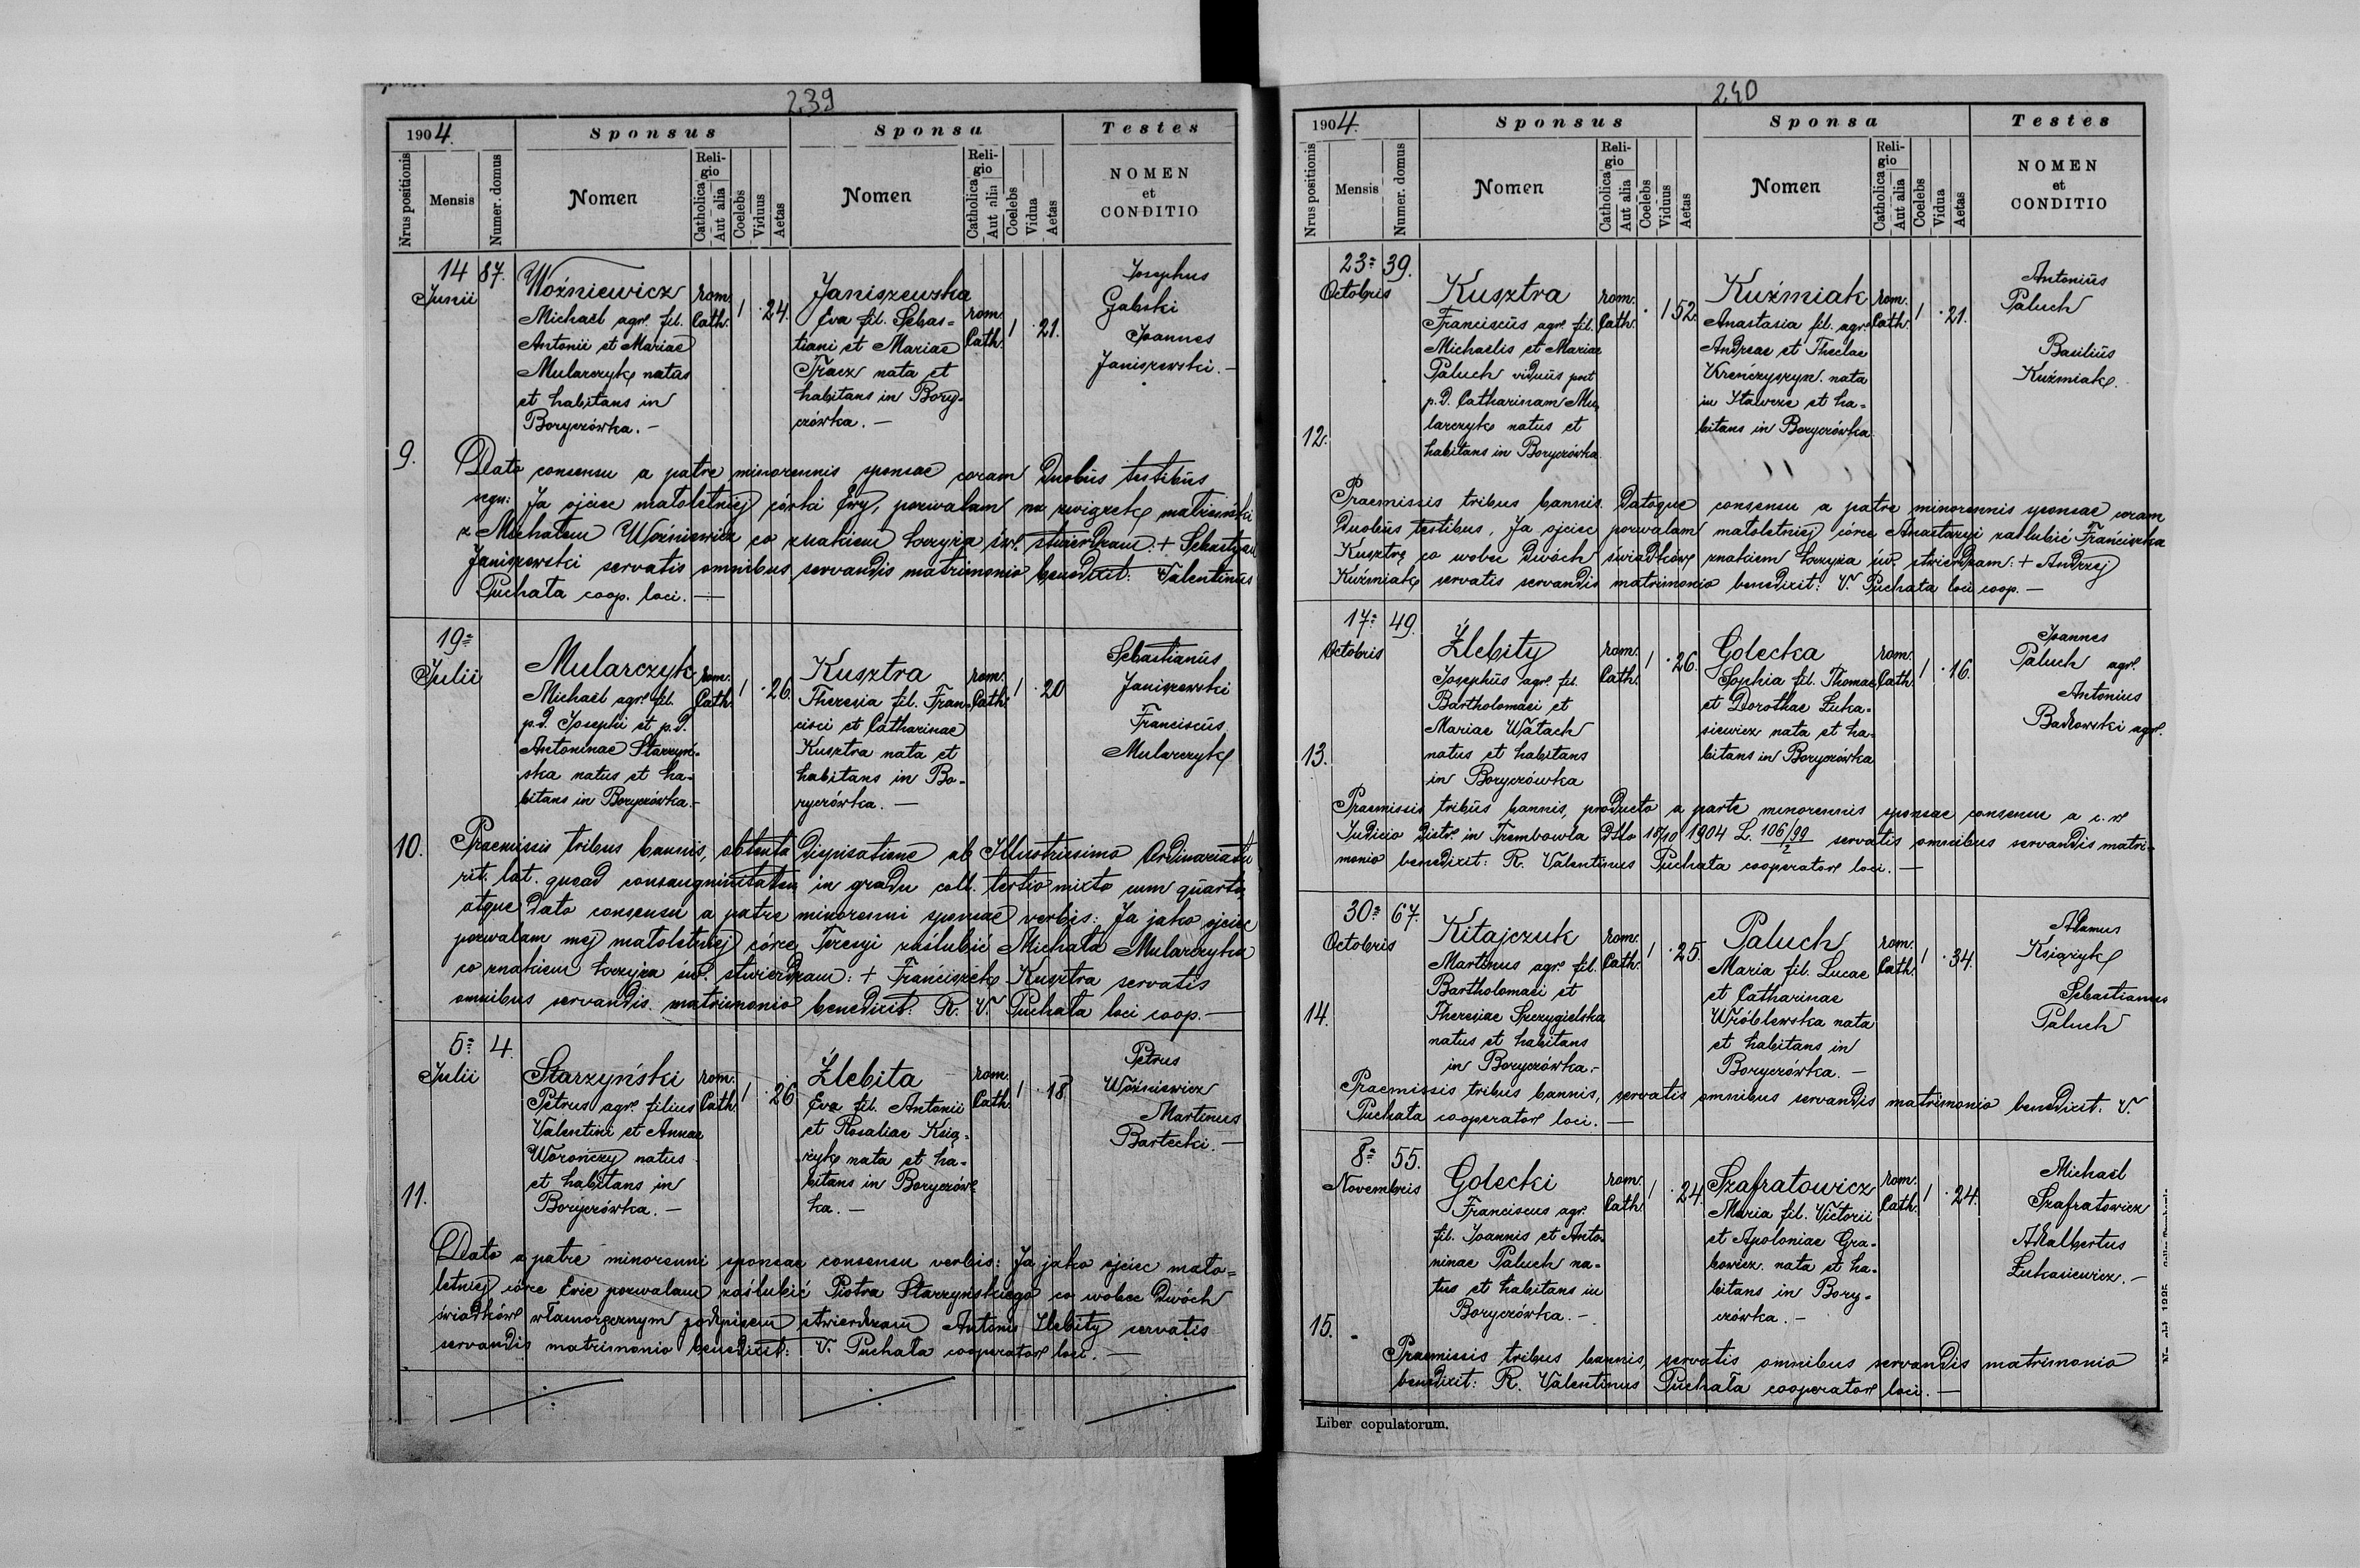 239
1904.
Sponsus
Sponsa
Testes
Nrus positionis
Mensis
Numer. domus
Nomen
Religio
Catholica
Aut alia
Coelebs
Viduus
Aetas
Nomen
Religio
Catholica
Aut alia
Coelebs
Vidua
Aetas
NOMEN
et
CONDITIO
9.
14
Junii
87.
Woźniewicz
Michael agr. fil.
Antonii et Mariae
Mularczyk natus
et habitans in
Boryczówka. —
rom.
Cath.
1 · 24.
Janiszewska
Eva fil. Sebas=
tiani et Mariae
Tracz nata et
habitans in Bory-
czówka. —
rom.
Cath.
1 · 21.
Josephus
Gabski
Joannes
Janiszewski. —
Dato consensu a patre minorennis sponsae coram duobus testibus
sequ: Ja ojciec małoletniej córki Ewy, pozwalam na związek małżeński
z Michałem Woźniewicz co znakiem krzyża św. stwierdzam: + Sebastyan
Janiszewski servatis omnibus servandis matrimonio benedixit: Valentinus
Puchała coop. loci. —
10.
19=
Julii
Mularczyk
Michael agr. fil.
p.d. Josephi et p.d.
Antoninae Starzyń-
ska natus et ha-
bitans in Boryczówka. —
rom.
Cath.
1 · 26.
Kusztra
Theresia fil. Fran-
cisci et Catharinae
Kusztra nata et
habitans in Bo-
ryczówka. —
rom.
Cath.
1 · 20
Sebastianus
Janiszewski
Franciscus
Mularczyk
Praemissis tribus bannis, obtenta dispisatione ab Illustrissimo Ordinariatu
rit. lat. quoad consanguinitatem in gradu coll. tertio mixto cum quarto,
atque dato consensu a patre minorenni sponsae verbis: Ja jako ojciec
pozwalam mej małoletniej córce Teresyi zaślubić Michała Mularczyka
co znakiem krzyża św. stwierdzam: + Franciszek Kusztra servatis
omnibus servandis matrimonio benedixit: R. V. Puchała loci coop. —
11.
5=
Julii
4.
Starzyński
Petrus agr. filius
Valentini et Annae
Worończy natus
et habitans in
Boryczówka. —
rom.
Cath.
1 · 26
Źlebita
Eva fil. Antonii
et Rosaliae Księ-
żyk nata et ha-
bitans in Boryczów-
ka. —
rom.
Cath.
1 · 18
Petrus
Woźniewicz
Martinus
Bartecki. —
Dato a patre minorenni sponsae consensu verbis: Ja jako ojciec mało=
letniej córce Ewie pozwalam zaślubić Piotra Starzyńskiego co wobec dwóch
świadków własnoręcznym podpisem stwierdzam Antoni Źlebity servatis
servandis matrimonio benedixit: V. Puchała cooperator loci. —
240
1904.
Sponsus
Sponsa
Testes
Nrus positionis
Mensis
Numer. domus
Nomen
Religio
Catholica
Aut alia
Coelebs
Viduus
Aetas
Nomen
Religio
Catholica
Aut alia
Coelebs
Vidua
Aetas
NOMEN
et
CONDITIO
12.
23=
Octobris
39.
Kusztra
Franciscus agr. fil.
Michaelis et Mariae
Paluch viduus post
p.d. Catharinam Mu-
larczyk natus et
habitans in Boryczówka.
rom.
Cath.
· 1 52.
Kuźmiak
Anastasia fil. agr.
Andreae et Theclae
Kreńczyszyn. nata
in Iławcze et ha=
bitans in Boryczówka
rom.
Cath.
1 · 21.
Antonius
Paluch
Basilius
Kuźmiak.
Praemissis tribus bannis. Datoque consensu a patre minorennis sponsae coram
duobus testibus. Ja ojciec pozwalam małoletniej córce Anastazyi zaślubić Franciszka
Kusztrę co wobec dwóch świadków znakiem krzyża św. stwierdzam: + Andrzej
Kuźmiak servatis servandis matrimonio benedixit: V. Puchała loci coop. —
13.
17=
Octobris
49.
Źlebity
Josephus agr. fil.
Bartholomaei et
Mariae Wałach
natus et habitans
in Boryczówka
rom.
Cath.
1 · 26.
Golecka
Sophia fil. Thomae
et Dorothae Łuka-
siewicz nata et ha-
bitans in Boryczówka
rom.
Cath.
1 · 16.
Joannes
Paluch agr.
Antonius
Badkowski agr.
Praemissis tribus bannis, producto a parte minorennis sponsae consensu a c. r
Judicio distr. in Trembowla dtto 15/10 1904 L. 106/99/2 servatis omnibus servandis matri-
monio benedixit: R. Valentinus Puchała cooperator loci. —
14.
30=
Octobris
67.
Kitajczuk
Martinus agr. fil.
Bartholomaei et
Theresiae Szczygielska
natus et habitans
in Boryczówka. —
rom.
Cath.
1 · 25.
Paluch
Maria fil. Lucae
et Catharinae
Wróblewska nata
et habitans in
Boryczówka. —
rom.
Cath.
1 · 34.
Adamus
Książyk
Sebastianus
Paluch
Praemissis tribus bannis, servatis omnibus servandis matrimonio benedixit. V.
Puchała cooperator loci. —
15.
8=
Novembris
55.
Golecki
Franciscus agr.
fil. Joannis et Anto-
ninae Paluch na-
tus et habitans in
Boryczówka. —
rom.
Cath.
1 · 24.
Szafratowicz
Maria fil. Victorii
et Apoloniae Gra-
bowicz. nata et ha-
bitans in Bory-
czówka. —
rom.
Cath.
1 · 24.
Michael
Szafratowicz
Adalbertus
Łukasiewicz. —
Praemissis tribus bannis, servatis omnibus servandis matrimonio
benedixit: R. Valentinus Puchała cooperator loci. —
Liber copulatorum.